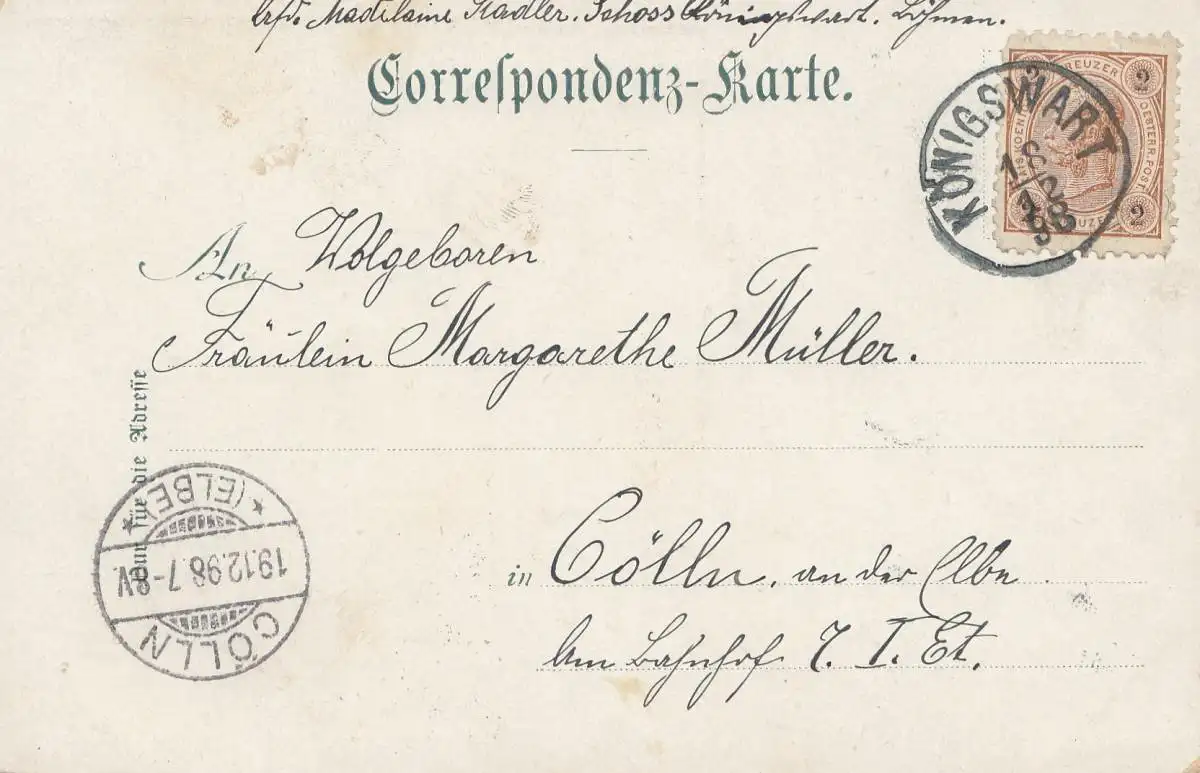 Madelaine Stadler. Schoss Königswart. Böhmen.
Correspondenz-Karte.
2 KREUZER 2
OESTERR. POST
KREUZER 2
KÖNIGSWART
18
12
98
An Wolgeboren
Fräulein Margarethe Müller.
Nur für die Adresse
in Cölln, an der Elbe
Am Bahnhof 7. I. Et.
CÖLLN
19.12.98.7-8V.
* (ELBE) *